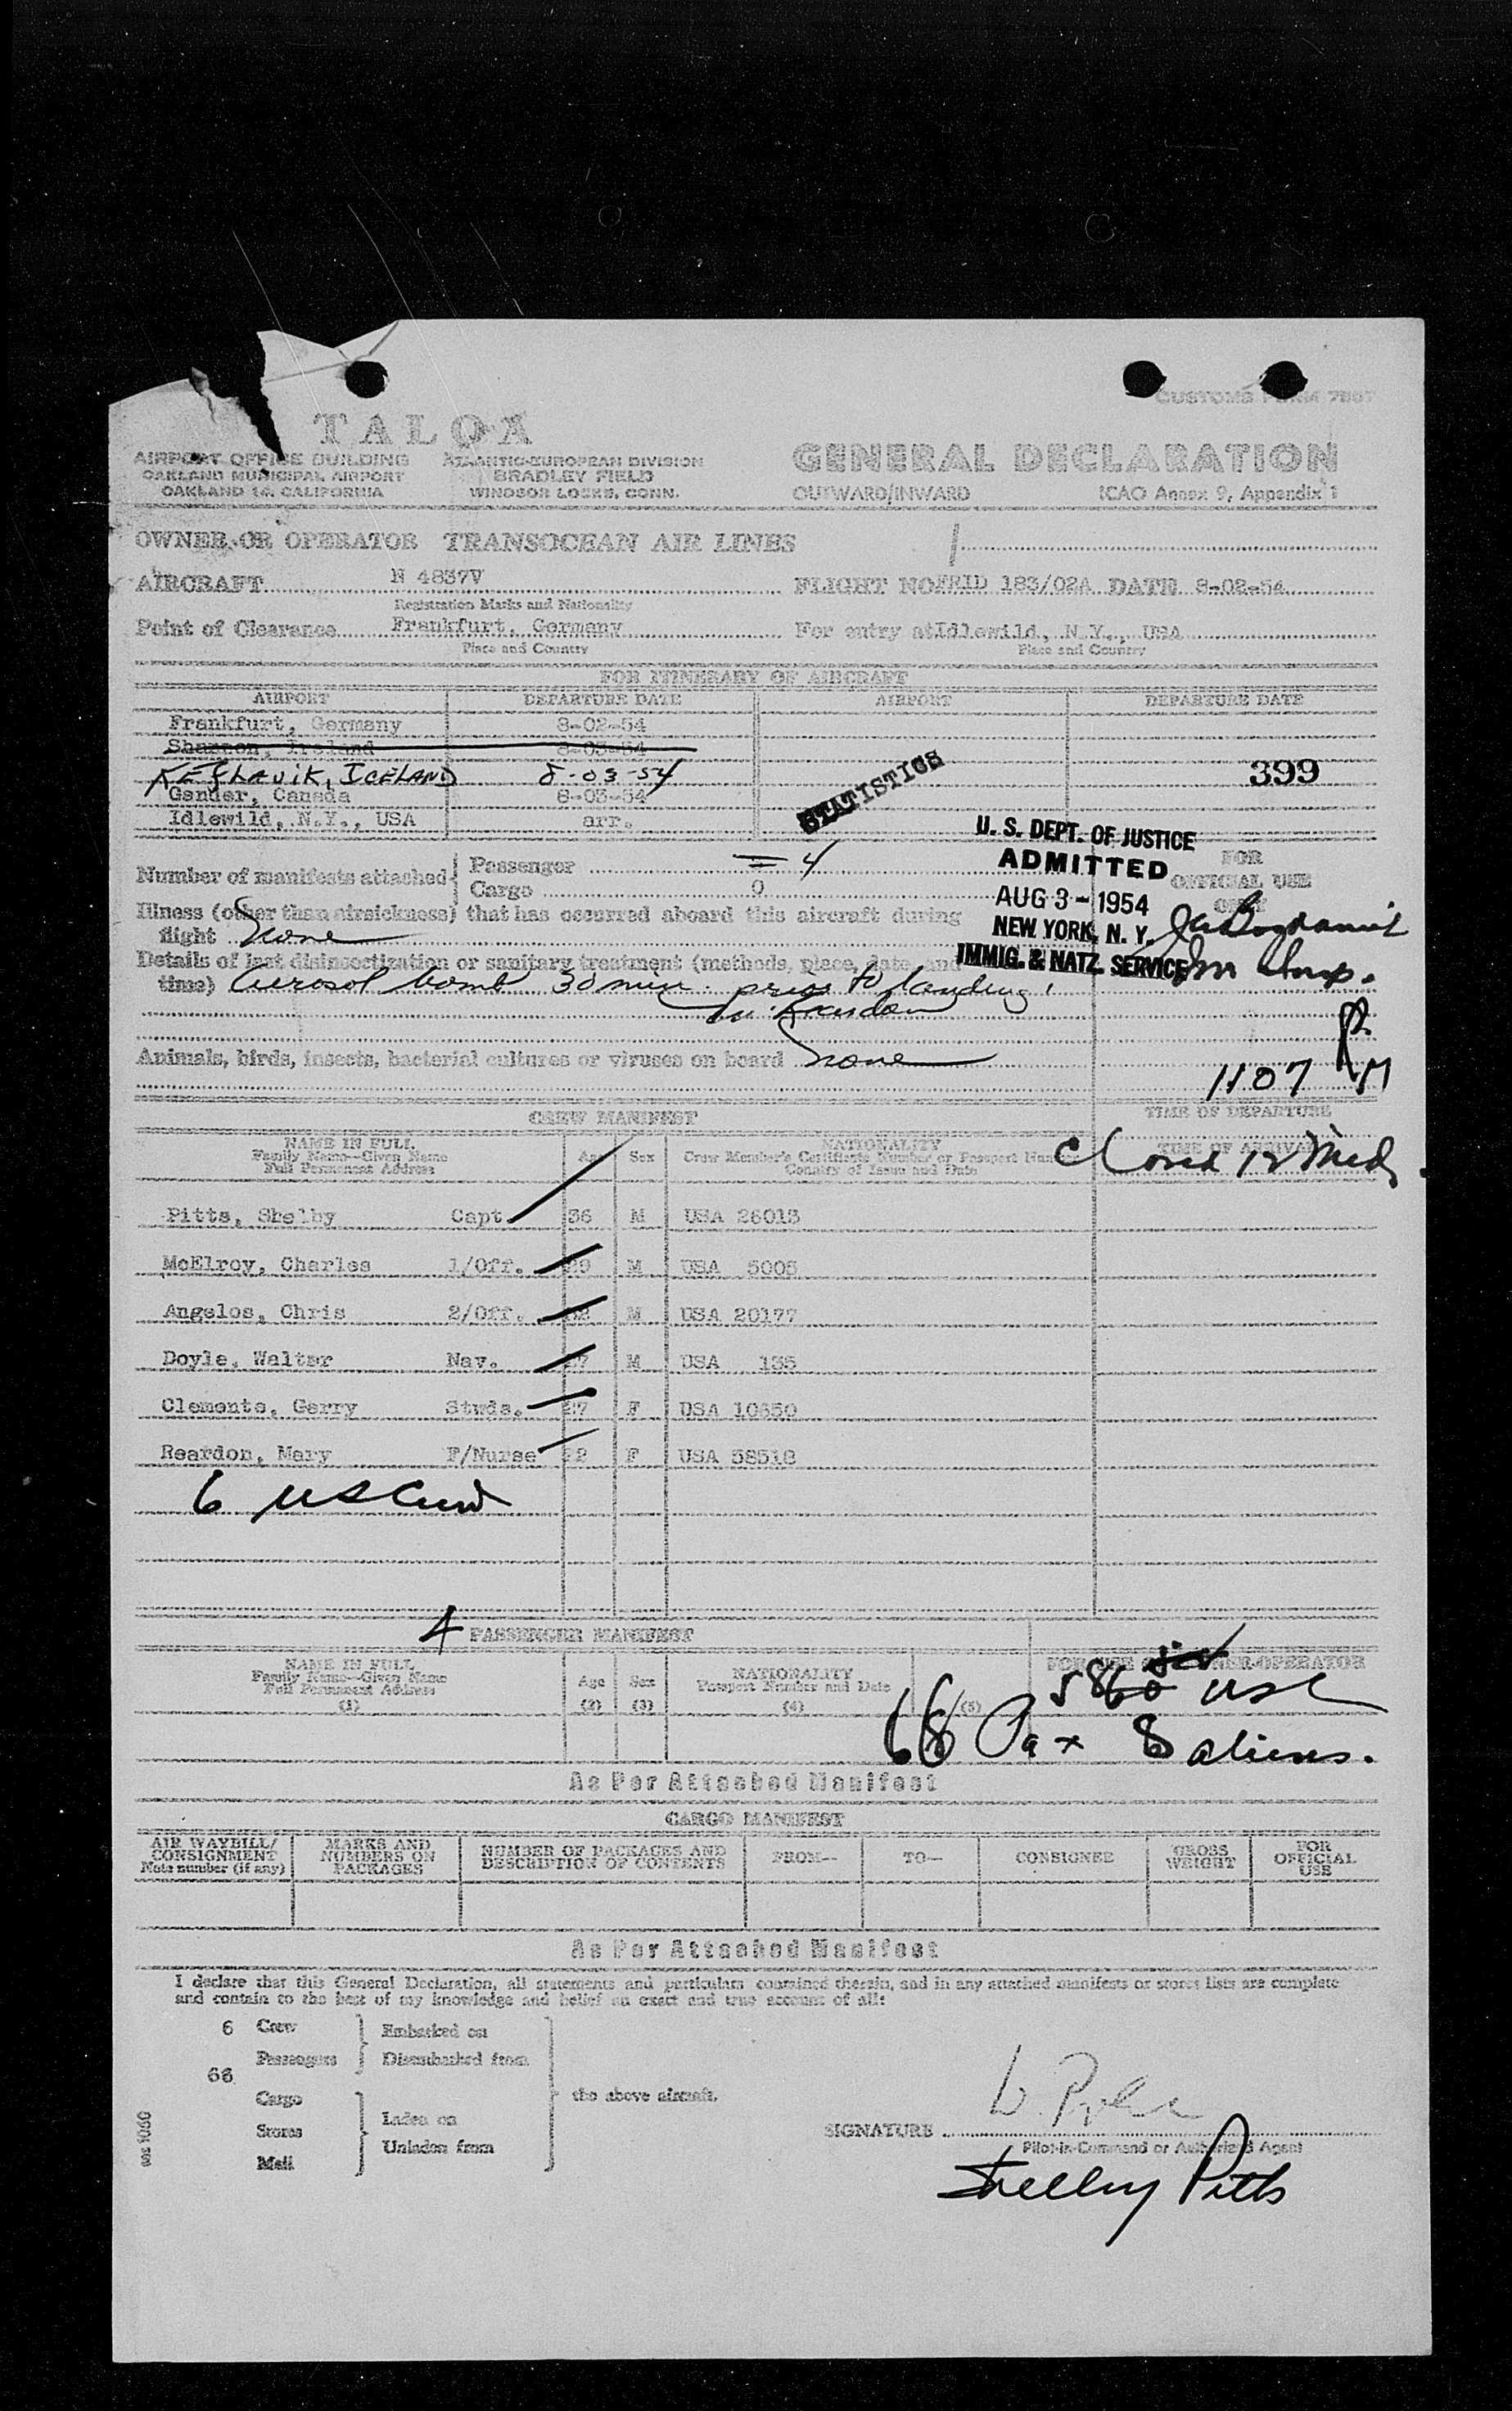 CUSTOMS FORM 7507
TALOA
AIRPORT OFFICE BUILDING
OAKLAND MUNICIPAL AIRPORT
OAKLAND 14, CALIFORNIA
ATLANTIC-EUROPEAN DIVISION
BRADLEY FIELD
WINDSOR LOCKS, CONN.
GENERAL DECLARATION
OUTWARD/INWARD ICAO Annex 9, Appendix 1
OWNER OR OPERATOR TRANSOCEAN AIR LINES
AIRCRAFT N 4837V FLIGHT NO. 183/02A DATE 8-02-54
Registration Marks and Nationality
Point of Clearance Frankfurt, Germany For entry at Idlewild, N.Y., USA
Place and Country Place and Country
FOR ITINERARY OF AIRCRAFT
AIRPORT DEPARTURE DATE AIRPORT DEPARTURE DATE
Frankfurt, Germany 8-02-54
Shannon, Ireland 8-03-54
KEFLAVIK, ICELAND 8-03-54
399
Gander, Canada 8-03-54
Idlewild, N.Y., USA arr.
STATISTICS
U. S. DEPT. OF JUSTICE
ADMITTED
AUG 3 - 1954
NEW YORK, N. Y.
IMMIG. & NATZ. SERVICE
FOR
OFFICIAL USE
ONLY
Number of manifests attached
Passenger 4
Cargo 0
Illness (other than airsickness) that has occurred aboard this aircraft during
flight None
Details of last disinsectization or sanitary treatment (methods, place, date, and
time) Aerosol bomb 30 min. prior to landing.
M. Reardon
Animals, birds, insects, bacterial cultures or viruses on board None
1107 PM
CREW MANIFEST TIME OF DEPARTURE
TIME OF ARRIVAL
NAME IN FULL
Family Name--Given Name
Full Permanent Address
Age Sex
NATIONALITY
Crew Member's Certificate Number or Passport Number
Country of Issue and Date
Pitts, Shelby Capt. 36 M USA 26013
McElroy, Charles 1/Off. 29 M USA 5005
Angelos, Chris 2/Off. M USA 20177
Doyle, Walter Nav. M USA 135
Clements, Gerry Stwds. 27 F USA 10850
Reardon, Mary F/Nurse 22 F USA 58518
6 USC
4 PASSENGER MANIFEST
NAME IN FULL
Family Name--Given Name
Full Permanent Address
(1)
Age
(2)
Sex
(3)
NATIONALITY
Passport Number and Date
(4)
(5)
FOR USE OF OWNER-OPERATOR
USC
68 Pax 8 aliens.
As Per Attached Manifest
CARGO MANIFEST
AIR WAYBILL/
CONSIGNMENT
Note number (if any)
MARKS AND
NUMBERS ON
PACKAGES
NUMBER OF PACKAGES AND
DESCRIPTION OF CONTENTS
FROM--
TO--
CONSIGNEE
GROSS
WEIGHT
FOR
OFFICIAL
USE
As Per Attached Manifest
I declare that this General Declaration, all statements and particulars contained therein, and in any attached manifests or stores lists are complete
and contain to the best of my knowledge and belief an exact and true account of all:
6 Crew Embarked on
Passengers Disembarked from
Cargo the above aircraft.
Stores Laden on
Mail Unladen from
SIGNATURE
Pilot-in-Command or Authorized Agent
Shelby Pitts